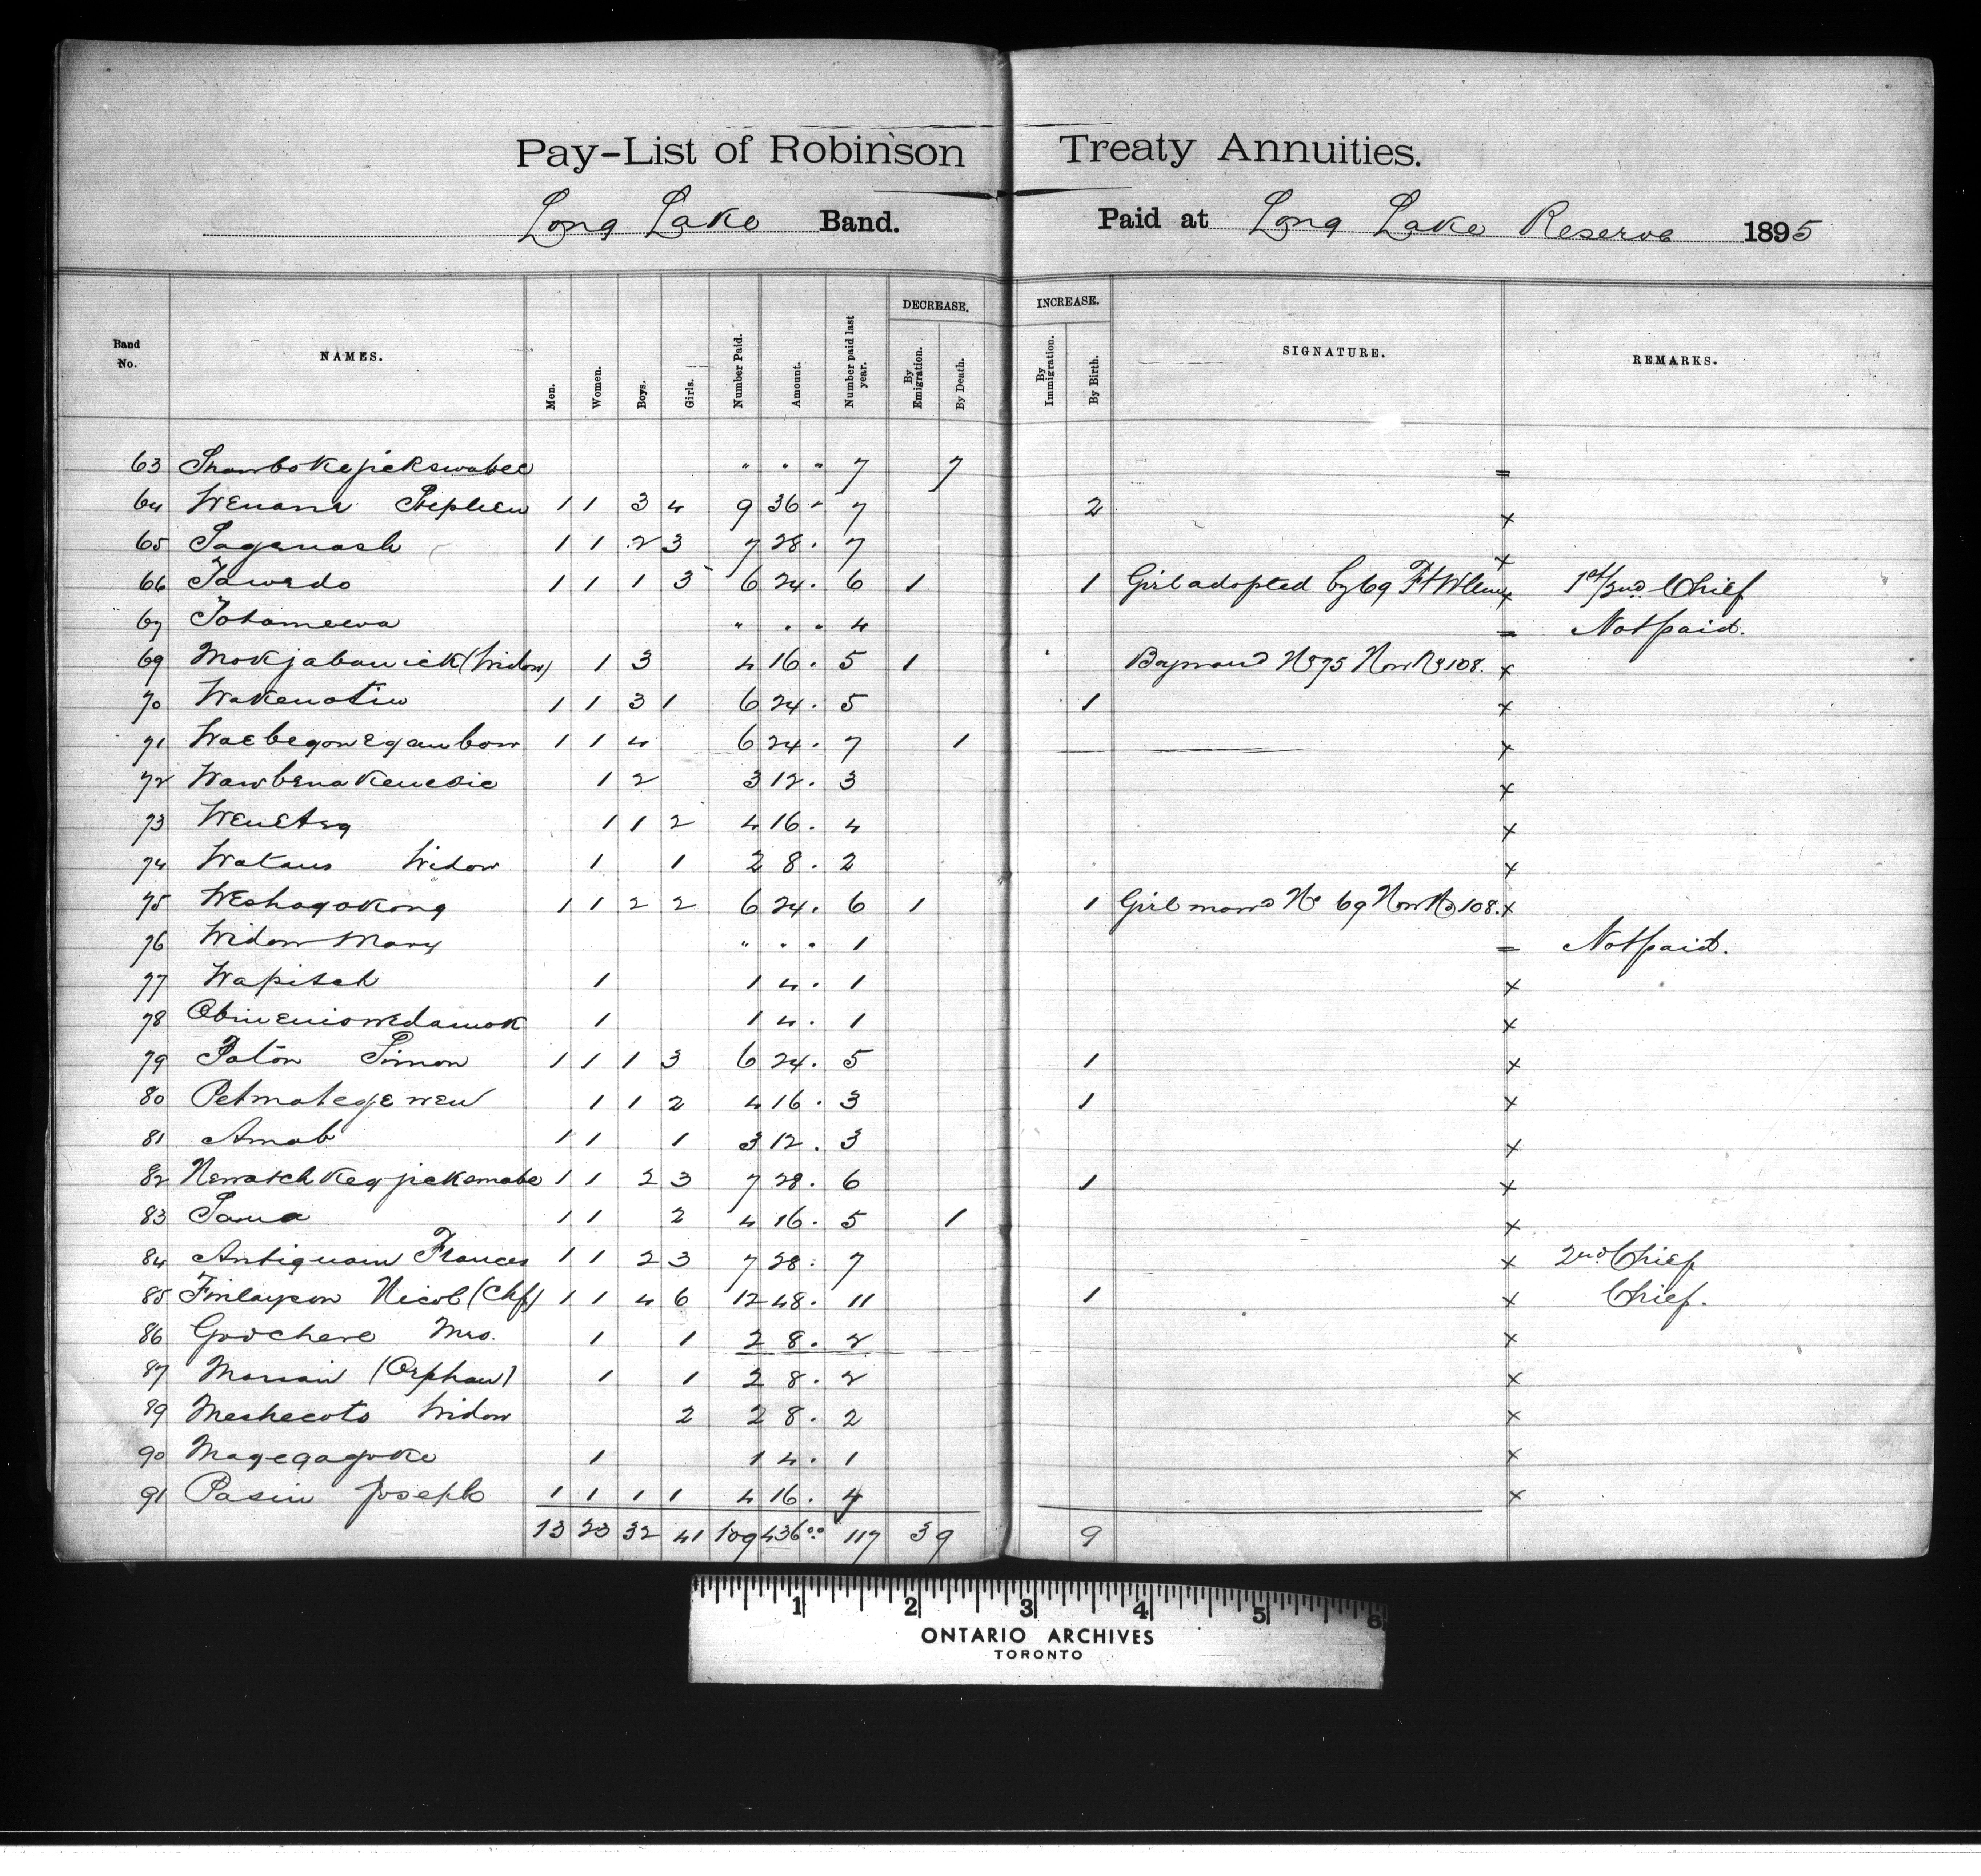 Pay-List of Robinson Treaty Annuities.
Long Lake Band. Paid at Long Lake Reserve 1895
Band No. NAMES. Men. Women. Boys. Girls. Number Paid. Amount. Number paid last year. DECREASE. By Emigration. By Death. INCREASE. By Immigration. By Birth. SIGNATURE. REMARKS.
63 " . " 7 7 =
64 Wenona Stephen 1 1 3 4 9 36 - 7 2 x
65 Saganash 1 1 2 3 7 28. 7 x
66 Tawedo 1 1 1 3 6 24. 6 1 1 Girl adopted by 69 Ft Wllm x 1st/2nd Chief
67 Totomeewa " . " 4 = Not paid.
69 Mokjabanick (Widow) 1 3 4 16. 5 1 No 75 Now No 108. x
70 Wakenotin 1 1 3 1 6 24. 5 1 x
71 Waebegonegaubow 1 1 4 6 24. 7 1 x
72 Wawbenakenesic 1 2 3 12. 3 x
73 Wenetsq 1 1 2 4 16. 4 x
74 Wataus Widow 1 1 2 8. 2 x
75 Weshagakong 1 1 2 2 6 24. 6 1 1 Girl marrd No 69 Now No 108. x
76 Widow Mary " . " 1 = Not paid.
77 Wapitch 1 1 4. 1 x
78 1 1 4. 1 x
79 Paton Simon 1 1 1 3 6 24. 5 1 x
80 Petmategewen 1 1 2 4 16. 3 1 x
81 Amab 1 1 1 3 12. 3 x
82 Newatchkegjickomabe 1 1 2 3 7 28. 6 1 x
83 Sama 1 1 2 4 16. 5 1 x
84 Antiquam Frances 1 1 2 3 7 28. 7 x 2nd Chief
85 Finlayson Nicol (Chf) 1 1 4 6 12 48. 11 1 x Chief.
86 Goodchere Mrs. 1 1 2 8. 2 x
87 (Orphan) 1 1 2 8. 2 x
89 Meshecoto Widow 2 2 8. 2 x
90 Magegagoke 1 1 4. 1 x
91 Pasin Joseph 1 1 1 1 4 16. 4 x
13 23 32 41 109 436.00 117 3 9 9
1 2 3 4 5 6
ONTARIO ARCHIVES
TORONTO